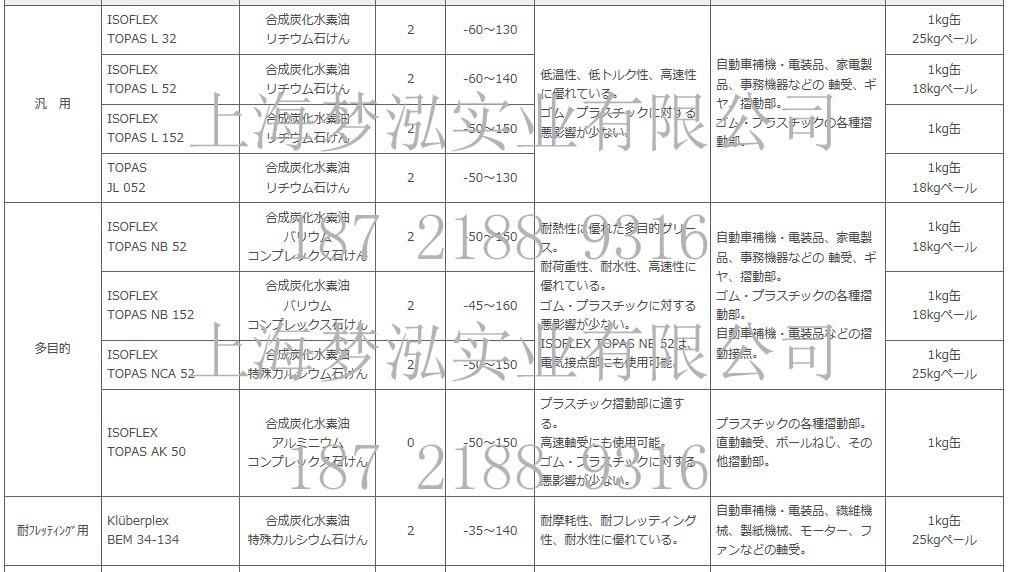 汎　用
ISOFLEX
TOPAS L 32
合成炭化水素油
リチウム石けん
2
-60～130
低温性、低トルク性、高速性
に優れている。
ゴム・プラスチックに対する
悪影響が少ない。
自動車補機・電装品、家電製
品、事務機器などの 軸受、ギ
ヤ、摺動部。
ゴム・プラスチックの各種摺
動部。
1kg缶
25kgペール
ISOFLEX
TOPAS L 52
合成炭化水素油
リチウム石けん
2
-60～140
1kg缶
18kgペール
ISOFLEX
TOPAS L 152
合成炭化水素油
リチウム石けん
2
-50～150
1kg缶
TOPAS
JL 052
合成炭化水素油
リチウム石けん
2
-50～130
1kg缶
18kgペール
多目的
ISOFLEX
TOPAS NB 52
合成炭化水素油
バリウム
コンプレックス石けん
2
-50～150
耐熱性に優れた多目的グリー
ス。
耐荷重性、耐水性、高速性に
優れている。
ゴム・プラスチックに対する
悪影響が少ない。
ISOFLEX TOPAS NB 52は、
電気接点部にも使用可能。
自動車補機・電装品、家電製
品、事務機器などの 軸受、ギ
ヤ、摺動部。
ゴム・プラスチックの各種摺
動部。
自動車補機・電装品などの摺
動接点。
1kg缶
18kgペール
ISOFLEX
TOPAS NB 152
合成炭化水素油
バリウム
コンプレックス石けん
2
-45～160
1kg缶
18kgペール
ISOFLEX
TOPAS NCA 52
合成炭化水素油
特殊カルシウム石けん
2
-50～150
1kg缶
25kgペール
ISOFLEX
TOPAS AK 50
合成炭化水素油
アルミニウム
コンプレックス石けん
0
-50～150
プラスチック摺動部に適す
る。
高速軸受にも使用可能。
ゴム・プラスチックに対する
悪影響が少ない。
プラスチックの各種摺動部。
直動軸受、ボールねじ、その
他摺動部。
1kg缶
耐ﾌﾚｯﾃｨﾝｸﾞ用
Klüberplex
BEM 34-134
合成炭化水素油
特殊カルシウム石けん
2
-35～140
耐摩耗性、耐フレッティング
性、耐水性に優れている。
自動車補機・電装品、繊維機
械、製紙機械、モーター、フ
ァンなどの軸受。
1kg缶
25kgペール
上海梦泓实业有限公司
187 2188 9316
上海梦泓实业有限公司
187 2188 9316